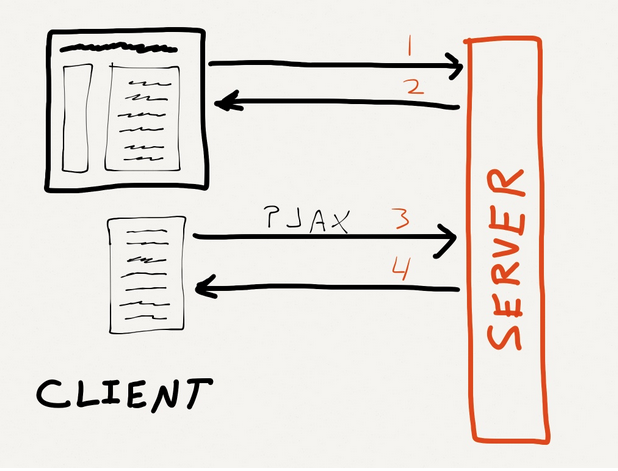 1
2
PJAX 3
4
SERVER
CLIENT